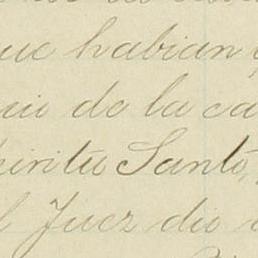 que habian
de la ca
piritu Santo,
el Juez dio